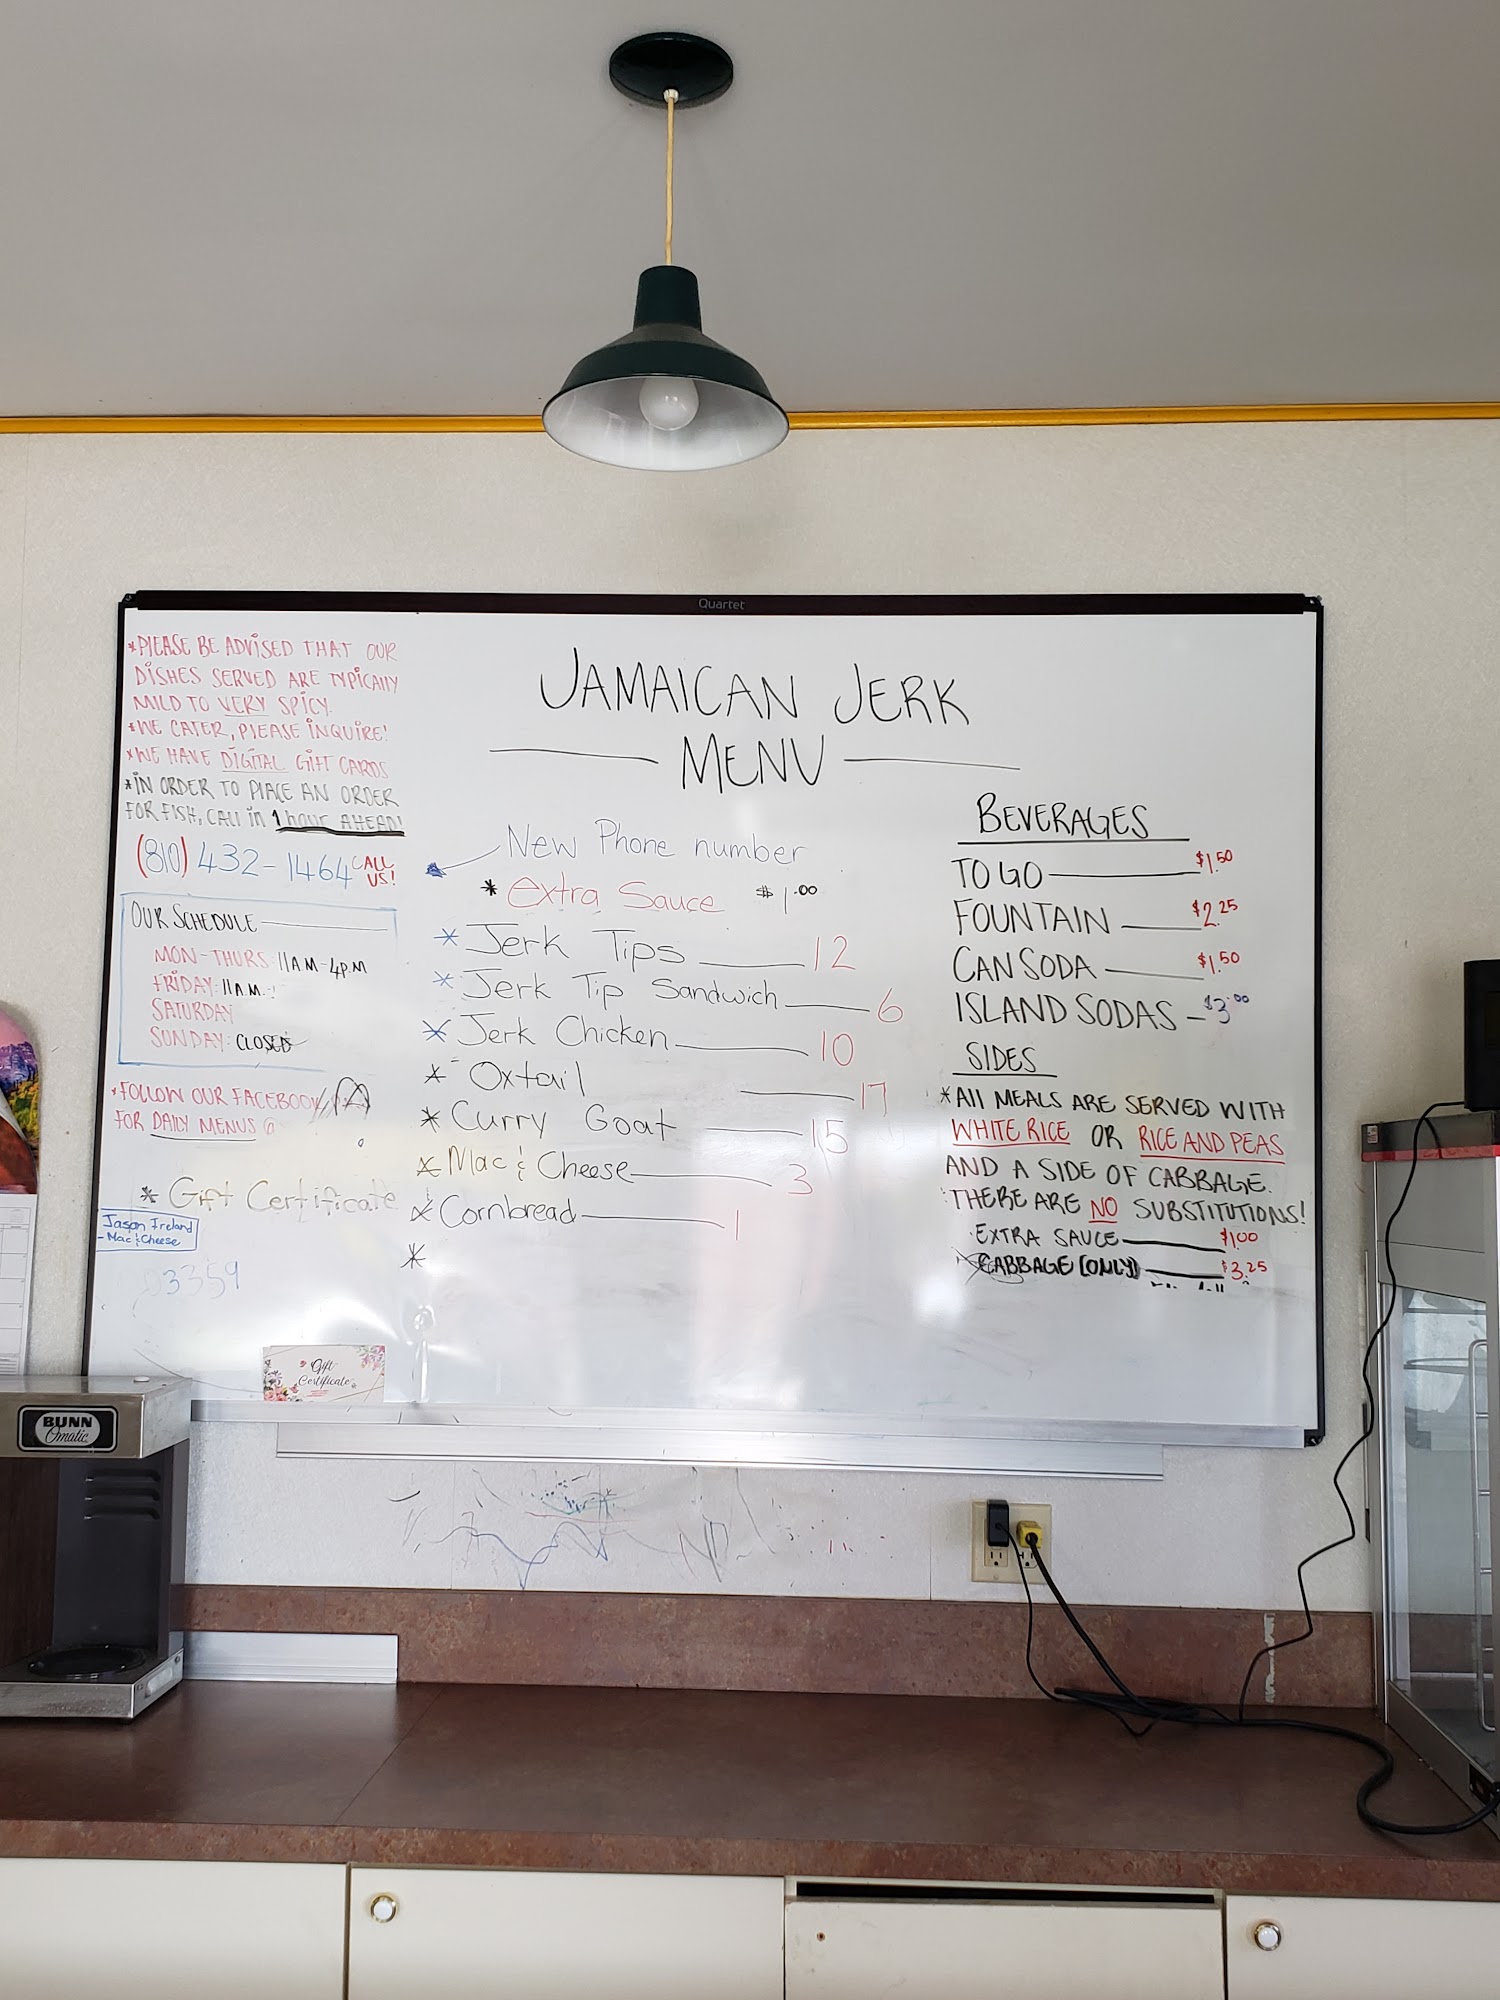 Quartet
*PLEASE BE ADVISED THAT OUR
DISHES SERVED ARE TYPICALLY
MILD TO VERY SPICY.
*WE CATER, PLEASE INQUIRE!
*WE HAVE DIGITAL GIFT CARDS
*IN ORDER TO PLACE AN ORDER
FOR FISH, CALL in 1 hour AHEAD!
(810) 432-1464 CALL US!
OUR SCHEDULE
MON-THURS: 11AM-4P.M
FRIDAY: 11A.M-
SATURDAY
SUNDAY: CLOSED
*FOLLOW OUR FACEBOOK
FOR DAILY MENUS @
* Gift Certificate
Jason Ireland
- Mac & Cheese
3359
Gift
Certificate
JAMAICAN JERK
MENU
New Phone number
* Extra Sauce $1.00
* Jerk Tips 12
* Jerk Tip Sandwich 6
* Jerk Chicken 10
* Oxtail 17
* Curry Goat 15
* Mac & Cheese 3
* Cornbread 1
*
BEVERAGES
TO GO $1.50
FOUNTAIN $2.25
CAN SODA $1.50
ISLAND SODAS - $3.00
SIDES
*All MEALS ARE SERVED WITH
WHITE RICE OR RICE AND PEAS
AND A SIDE OF CABBAGE.
THERE ARE NO SUBSTITUTIONS!
EXTRA SAUCE $1.00
CABBAGE (ONLY) $3.25
BUNN
Omatic